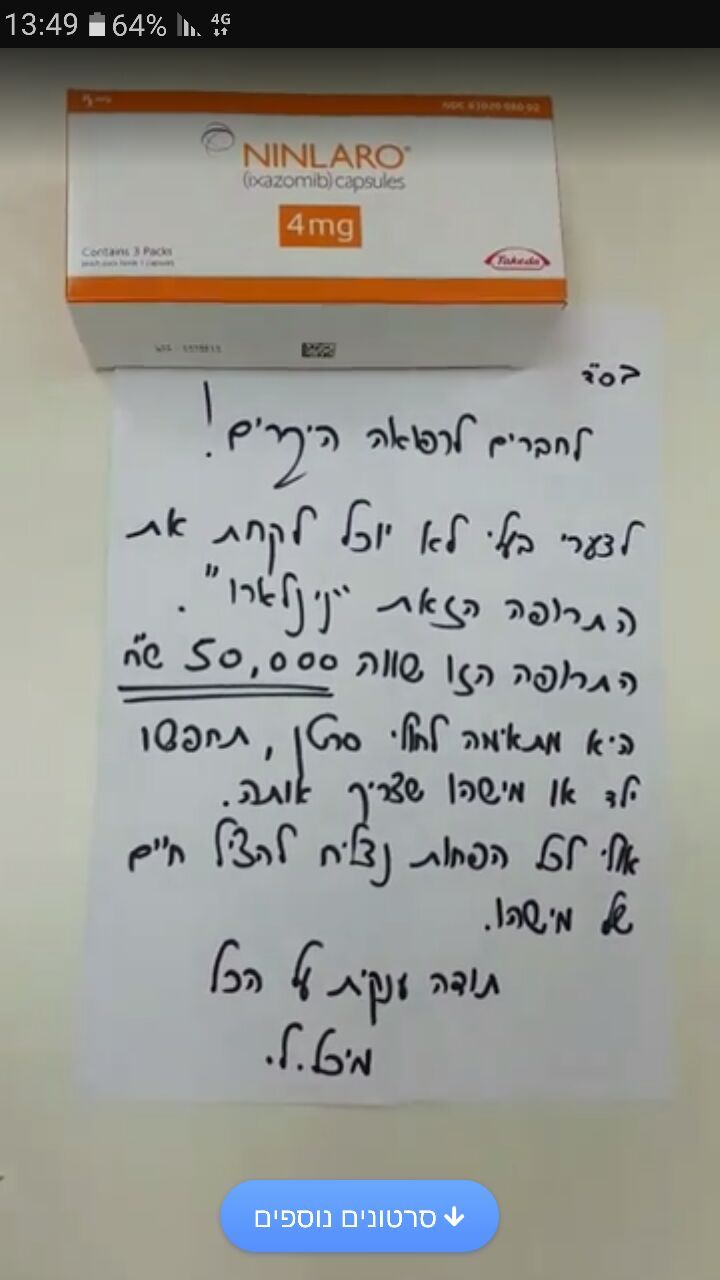 13:49 64% 4G
NDC 63020-080-02
NINLARO®
(ixazomib) capsules
4mg
Contains 3 Packs
Takeda
בס"ד
לחברים לרפואה היקרים!
לצערי בעלי לא יוכל לקחת את
התרופה הזאת "נינלארו".
התרופה הזו שווה 50,000 ש"ח
היא מתאימה לחולי סרטן, תחפשו
ילד או מישהו שצריך אותה.
אולי לכל הפחות נצליח להציל חיים
של מישהו.
תודה ענקית על הכל
מיכל.ל.
סרטונים נוספים